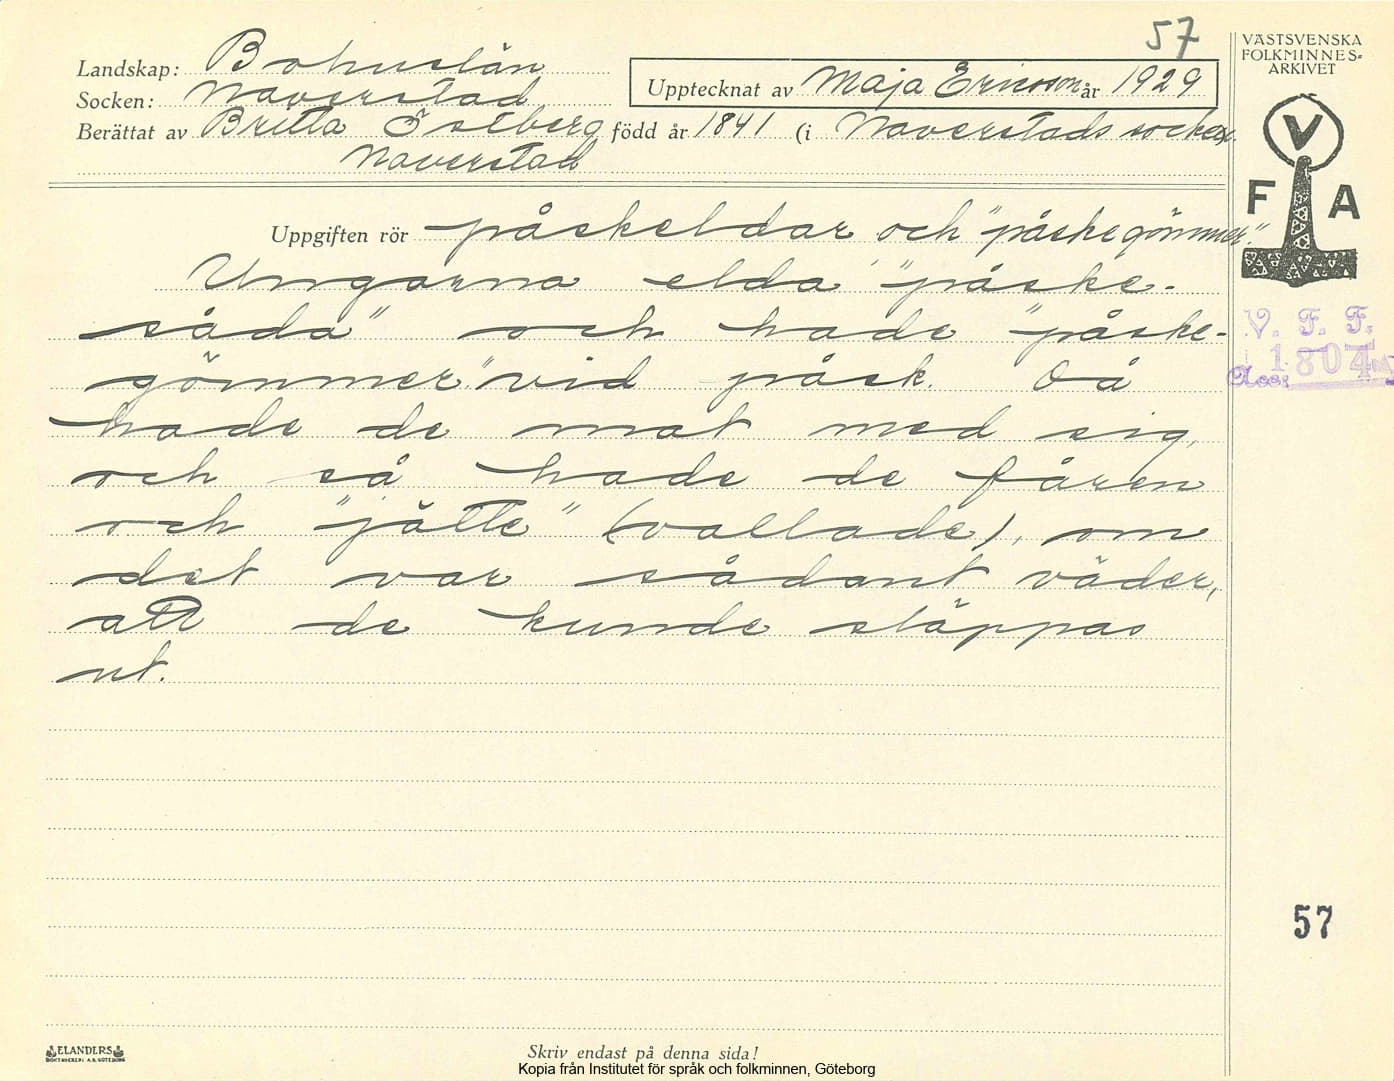 57
VÄSTSVENSKA
FOLKMINNES-
ARKIVET
Landskap: Bohuslän
Socken: Naverstad
Upptecknat av Maja Ericsson år 1929
Berättat av Britta Östberg född år 1841 (i Naverstads socken.
Naverstad
V
F A
Uppgiften rör påskeldar och "påskegömmer".
Ungarna elda "påske-
såda" och hade "påske-
gömmer" vid påsk. Då
hade de mat med sig,
och så hade de fåren
och "jätte" (vallade), om
det var sådant väder,
att de kunde släppas
ut.
V. F. F.
Acc. 1804
57
ELANDERS
BOKTRYCKERI A.B. GÖTEBORG
Skriv endast på denna sida!
Kopia från Institutet för språk och folkminnen, Göteborg